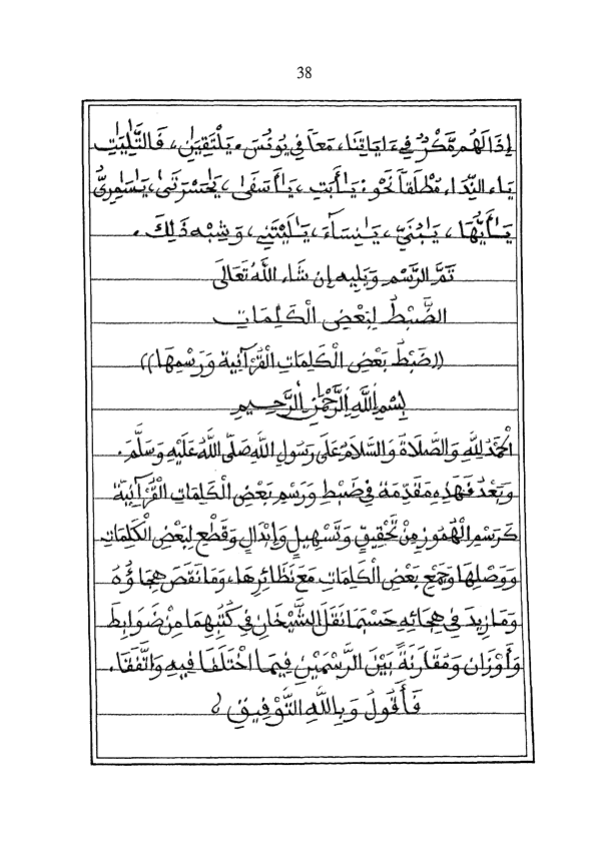 38
إِذَا لَهُم مَّكْرٌ فِي ءَايَاتِنَا، مَعاً فِي يُونُسَ، يَلْتَقِيَٰنِ، فَالتَّٰلِيَٰتِ
يَاء النِّدَاء مُطْلَقاً نَحْوُ: يَٰأَبَتِ، يَٰأَسَفَىٰ، يَٰحَسْرَتَىٰ، يَٰسَٰمِرِىُّ
يَٰأَيُّهَا، يَٰبُنَيِّ، يَٰنِسَآءَ، يَٰلَيْتَنِي، وَشِبْه ذَلِكَ.
تَمَّ الرَّسْم وَيَلِيهِ إِن شَاءَ اللَّهُ تَعَالَى
الضَّبْطُ لِبَعْضِ الْكَلِمَاتِ
((ضَبْطُ بَعْضِ الْكَلِمَاتِ الْقُرْآنِية وَرَسْمِهَا))
بِسْمِ اللَّهِ الرَّحْمَٰنِ الرَّحِيمِ
الْحَمْدُ لِلَّهِ وَالصَّلَاةُ وَالسَّلَامُ عَلَى رَسُولِ اللَّهِ صَلَّى اللَّهُ عَلَيْهِ وَسَلَّمَ.
وَبَعْدُ فَهَذِهِ مُقَدِّمَةٌ فِي ضَبْطِ وَرَسْمِ بَعْضِ الْكَلِمَاتِ الْقُرْآنِيَّةِ
كَرَسْمِ الْهُمُوزِ مِنْ تَحْقِيقٍ وَتَسْهِيلٍ وَإِبْدَالٍ وَقَطْعٍ لِبَعْضِ الْكَلِمَاتِ
وَوَصْلِهَا وَجَمْعِ بَعْضِ الْكَلِمَاتِ مَعَ نَظَائِرِهَا، وَمَا نَقَصَ هِجَاؤُهُ
وَمَا زِيدَ فِي هِجَائِهِ حَسْبَمَا نَقَلَ الشَّيْخَانِ فِي كُتُبِهِمَا مِنْ ضَوَابِطَ
وَأَوْزَانٍ وَمُقَارَنَةً بَيْنَ الرَّسْمَيْنِ فِيمَا اخْتَلَفَا فِيهِ وَاتَّفَقَا،
فَأَقُولُ وَبِاللَّهِ التَّوْفِيقِ